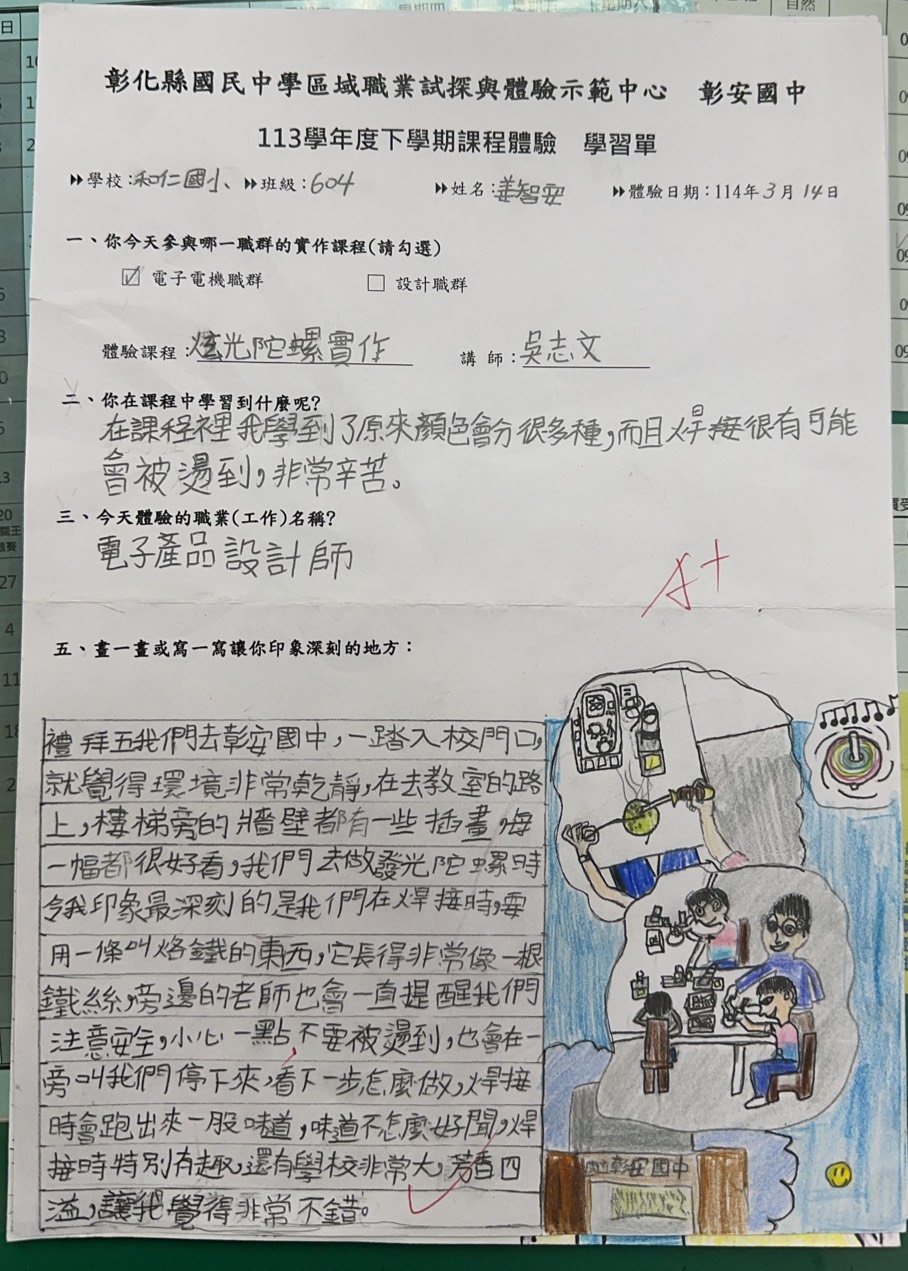 日
星期四
自然
彰化縣國民中學區域職業試探與體驗示範中心 彰安國中
113學年度下學期課程體驗 學習單
學校:和仁國小、 班級:604 姓名:姜智安 體驗日期:114年3月14日
一、你今天參與哪一職群的實作課程(請勾選)
☑ 電子電機職群 □ 設計職群
體驗課程:炫光陀螺實作 講師:吳志文
二、你在課程中學習到什麼呢?
在課程裡我學到了原來顏色會分很多種,而且焊接很有可能
會被燙到,非常辛苦。
三、今天體驗的職業(工作)名稱?
電子產品設計師
A+
五、畫一畫或寫一寫讓你印象深刻的地方:
禮拜五我們去彰安國中,一踏入校門口,
就覺得環境非常乾靜,在去教室的路
上,樓梯旁的牆壁都有一些插畫,每
一幅都很好看,我們去做發光陀螺時
令我印象最深刻的是我們在焊接時,要
用一條叫烙鐵的東西,它長得非常像一根
鐵絲,旁邊的老師也會一直提醒我們
注意安全,小心一點,不要被燙到,也會在一
旁叫我們停下來,看下一步怎麼做,焊接
時會跑出來一股味道,味道不怎麼好聞,焊
接時特別有趣,還有學校非常大,芳香四
溢,讓我覺得非常不錯。
彰安國中
27
4
11
2